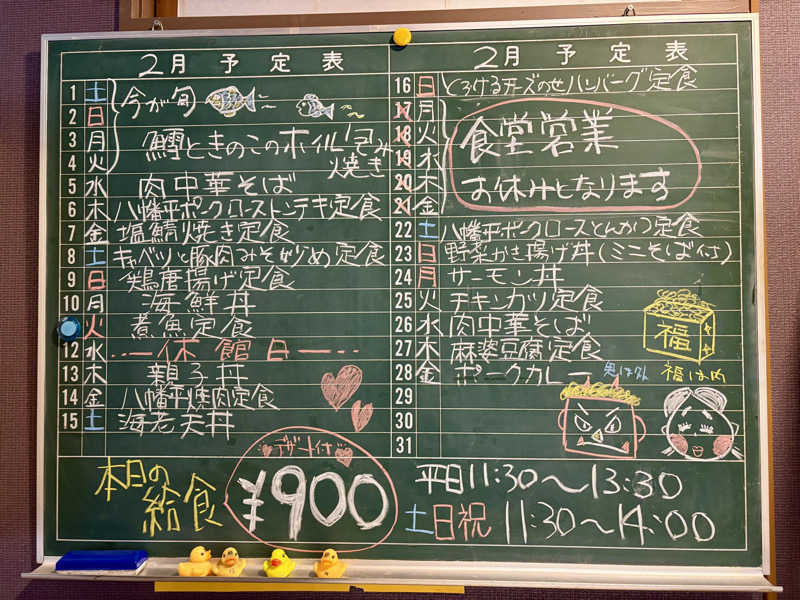 2月 予定表
1 土
2 日
3 月
4 火
今が旬
鱈ときのこのホイル包み
焼き
5 水 肉中華そば
6 木 八幡平ポークローストンテキ定食
7 金 塩鯖焼き定食
8 土 キャベツと豚肉みそ炒め定食
9 日 鶏唐揚げ定食
10 月 海鮮丼
火 煮魚定食
12 水 休館日
13 木 親子丼
14 金 八幡平焼肉定食
15 土 海老天丼
2月 予定表
16 日 とろけるチーズのせハンバーグ定食
17 月
18 火
19 水
20 木
21 金
食堂営業
お休みとなります
22 土 八幡平ポークロースとんかつ定食
23 日 野菜かき揚げ丼(ミニそば付)
24 月 サーモン丼
25 火 チキンカツ定食
26 水 肉中華そば
27 木 麻婆豆腐定食
28 金 ポークカレー
29
30
31
福
鬼は外
福は内
本日の
給食
デザート付
¥900
平日11:30〜13:30
土日祝 11:30〜14:00